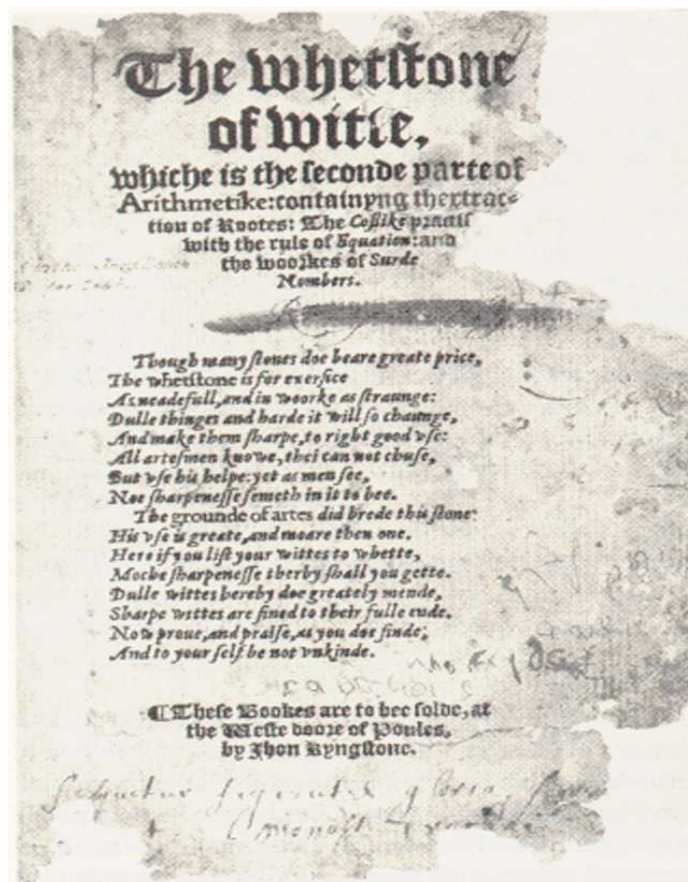 The whetſtone
of witte,
whiche is the ſeconde parte of
Arithmetike: containyng thextrac-
tion of Rootes: The Coßike practiſe
with the rule of Equation: and
the woorkes of Surde
Nombers.
Though many ſtones doe beare greate price,
The whetſtone is for exerſice
As neadefull, and in woorke as ſtraunge:
Dulle thinges and harde it will ſo chaunge,
And make them ſharpe, to right good vſe:
All arteſmen knowe, thei can not chuſe,
But vſe his helpe: yet as men ſee,
Noe ſharpeneſſe ſemeth in it to bee.
The grounde of artes did brede this ſtone:
His vſe is greate, and moare then one.
Here if you liſt your wittes to whette,
Moche ſharpeneſſe therby ſhall you gette.
Dulle wittes hereby doe greately mende,
Sharpe wittes are fined to their fulle ende.
Now proue, and praiſe, as you doe finde,
And to your ſelf be not vnkinde.
¶ Theſe Bookes are to bee ſolde, at
the Weſte doore of Poules,
by Jhon Kyngſtone.